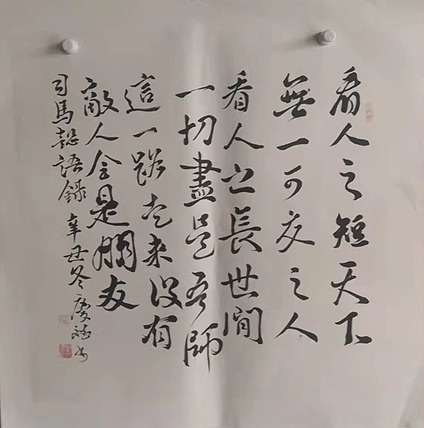 看人之短天下
無一可交之人
看人之長世間
一切盡是吾師
這一路走来没有
敵人全是朋友
司馬懿語録 辛丑冬慶